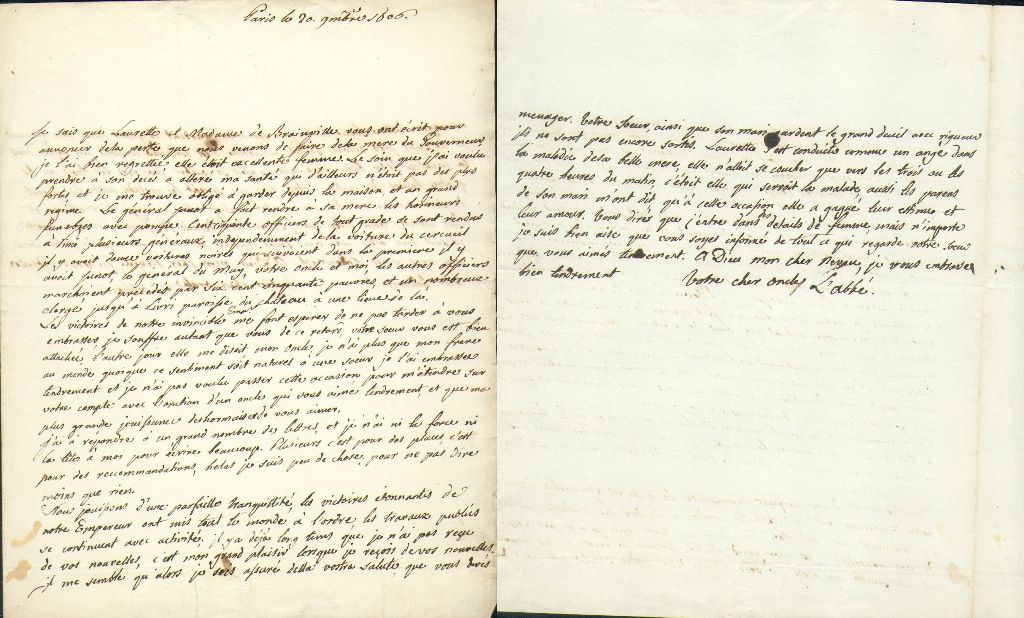 Paris le 20. 9mbre 1806.
Je sais que Laurette et Madame de Brainville vous ont écrit pour
annoncer de la perte que nous venons de faire de la mere du Gouverneur,
je l'ai bien regrettée elle étoit excellente femme. Le soin que j'ai voulu
prendre à son decès a altéré ma santé qui d'ailleurs n'étoit pas des plus
fortes, et je me trouve obligé à garder depuis la maison et un grand
regime. Le général Junot a fait rendre à sa mere les honneurs
funebres avec pompe. Cent cinquante officiers de tout grade se sont rendus
à plusieurs generaux, independenment de la voiture du cercueil
il y avoit douze voitures noires qui suivoient dans la premiere il y
avoit Junot, le général du Muy, votre oncle et moi, les autres officiers
marchoient précédés par six cent cinquante pauvres et un nombreux
clergé jusqu'à Livri paroisse du château à une lieue de là.
Les victoires de notre invincible Emper. me font esperer de ne pas tarder à vous
embrasser, je souffre autant que vous de ce retard, votre soeur vous est bien
attachée l'autre jour elle me disoit, mon oncle, je n'ai plus que mon frere
au monde quoique ce sentiment soit naturel à une soeur je l'ai embrassée
tendrement et je n'ai pas voulu passer cette occasion pour m'étendre sur
votre compte avec l'onction d'un oncle qui vous aime tendrement, et que ma
plus grande jouissance deshormais de vous aimer.
j'ai à repondre à un grand nombre de lettres, et je n'ai ni la force ni
la tête à moi pour écrire beaucoup. Plusieurs c'est pour des places, c'est
pour des reccommandations, helas je suis peu de chose, pour ne pas dire
moins que rien.
Nous jouissons d'une parfaitte tranquillité, les victoires étonnantes de
notre Empereur ont mis tout le monde à l'ordre, les travaux publics
se continuent avec activité. il y a déjà long tems que je n'ai pas reçu
de vos nouvelles, c'est mon grand plaisir lorsque je reçois de vos nouvelles.
il me semble qu'alors je sois assuré della vostra salute, que vous devés
menager. Votre soeur, ainsi que son mari gardent le grand deuil avec rigueur
ils ne sont pas encore sortis. Laurette s'est conduite comme un ange dans
la maladie de la belle mere, elle n'alloit se coucher que vers les trois ou les
quatre heures du matin, c'étoit elle qui servoit la malade, aussi les parens
de son mari m'ont dit qu'à cette occasion elle a gagné leur estime et
leur amour. Vous dirés que j'entre dans des details de femme, mais n'importe
je suis bien aise que vous soyés informé de tout ce qui regarde votre soeur
que vous aimés tendrement. A Dieu mon cher Neveu, je vous embrasse
bien tendrement
Votre cher oncle
L'abbé.